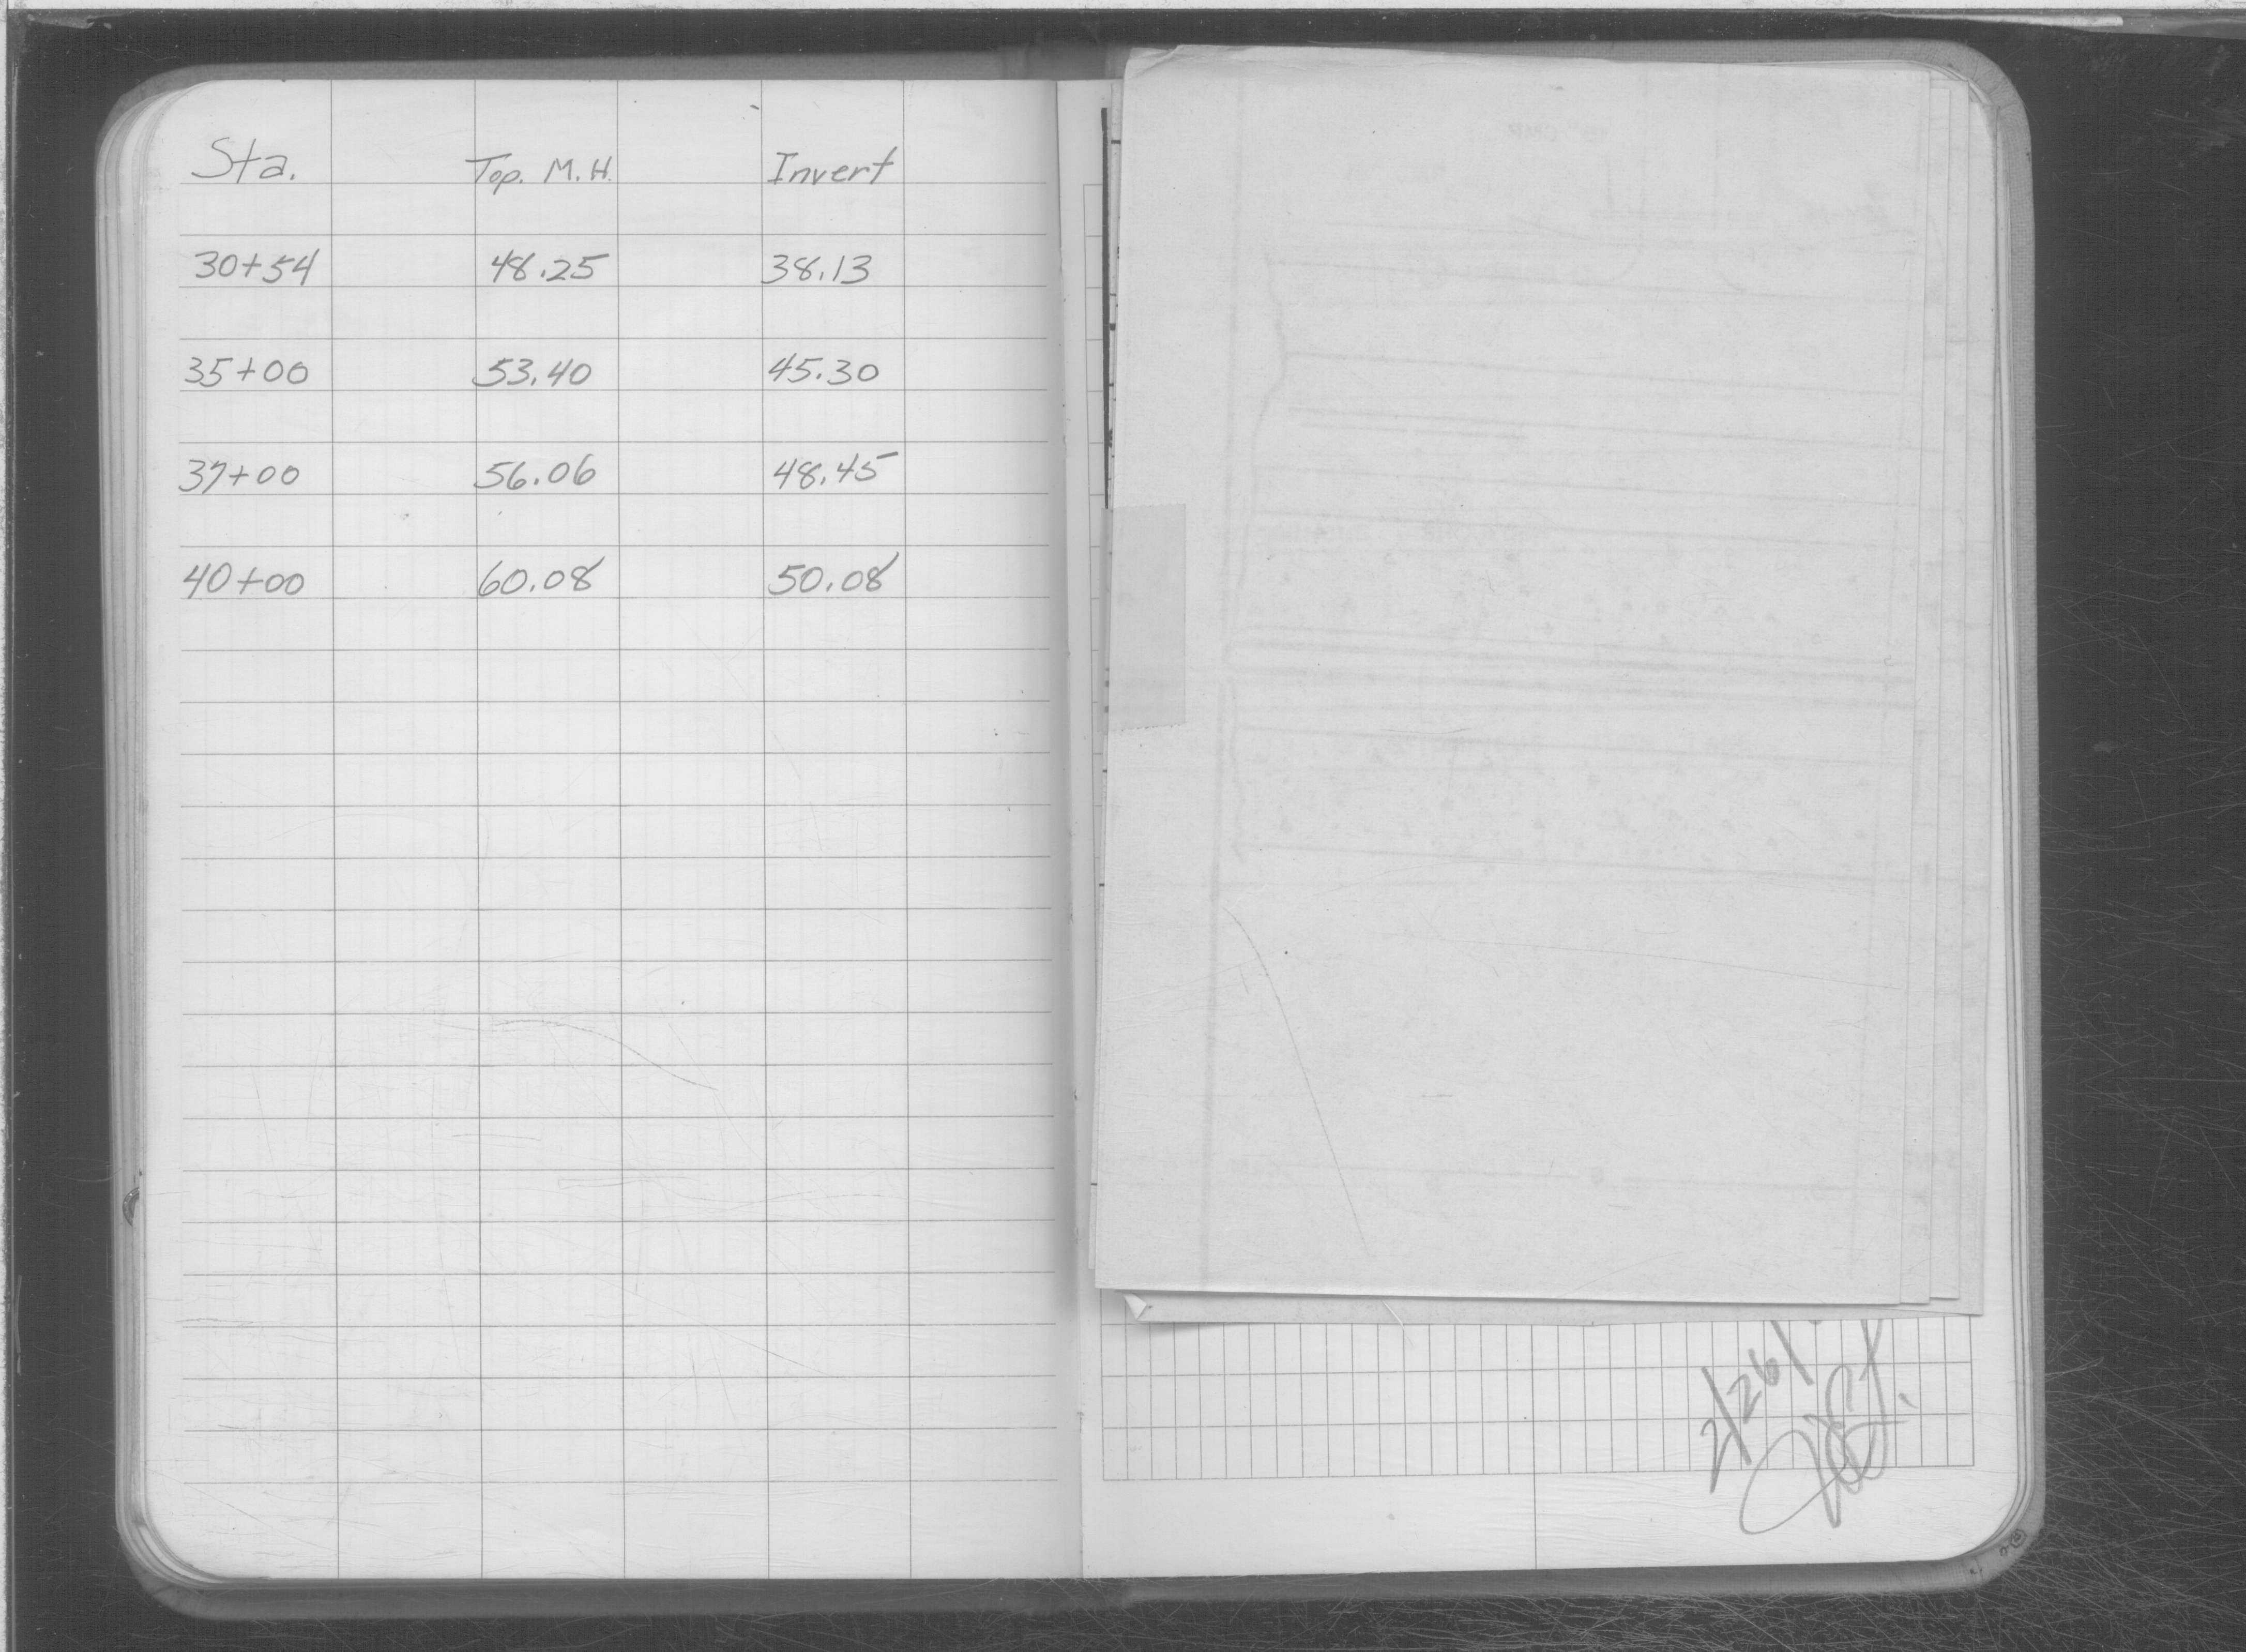 Sta. Top. M.H. Invert
30+54 48.25 38.13
35+00 53.40 45.30
37+00 56.06 48.45
40+00 60.08 50.08
2/26/